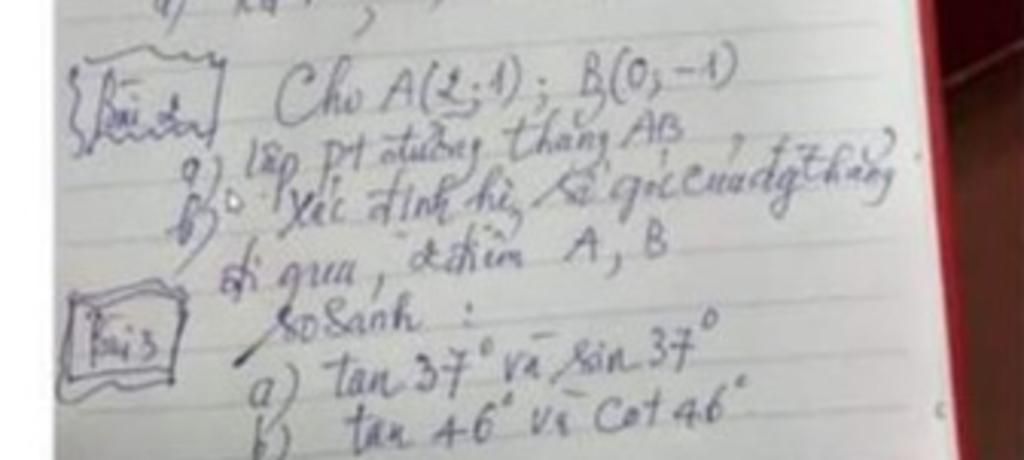 Bài 2 Cho A(2;1); B(0;-1)
a) lập pt đường thẳng AB
b) Xác định hệ số góc của đg thẳng
đi qua, 2 điểm A, B
Bài 3 So sánh :
a) tan 37° và sin 37°
b) tan 46° và cot 46°